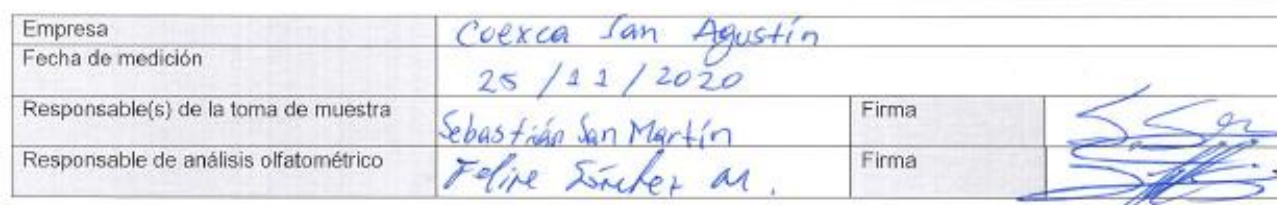 Empresa Coexca San Agustín
Fecha de medición 25/11/2020
Responsable(s) de la toma de muestra Sebastián San Martín Firma
Responsable de análisis olfatométrico Felipe Sánchez M. Firma